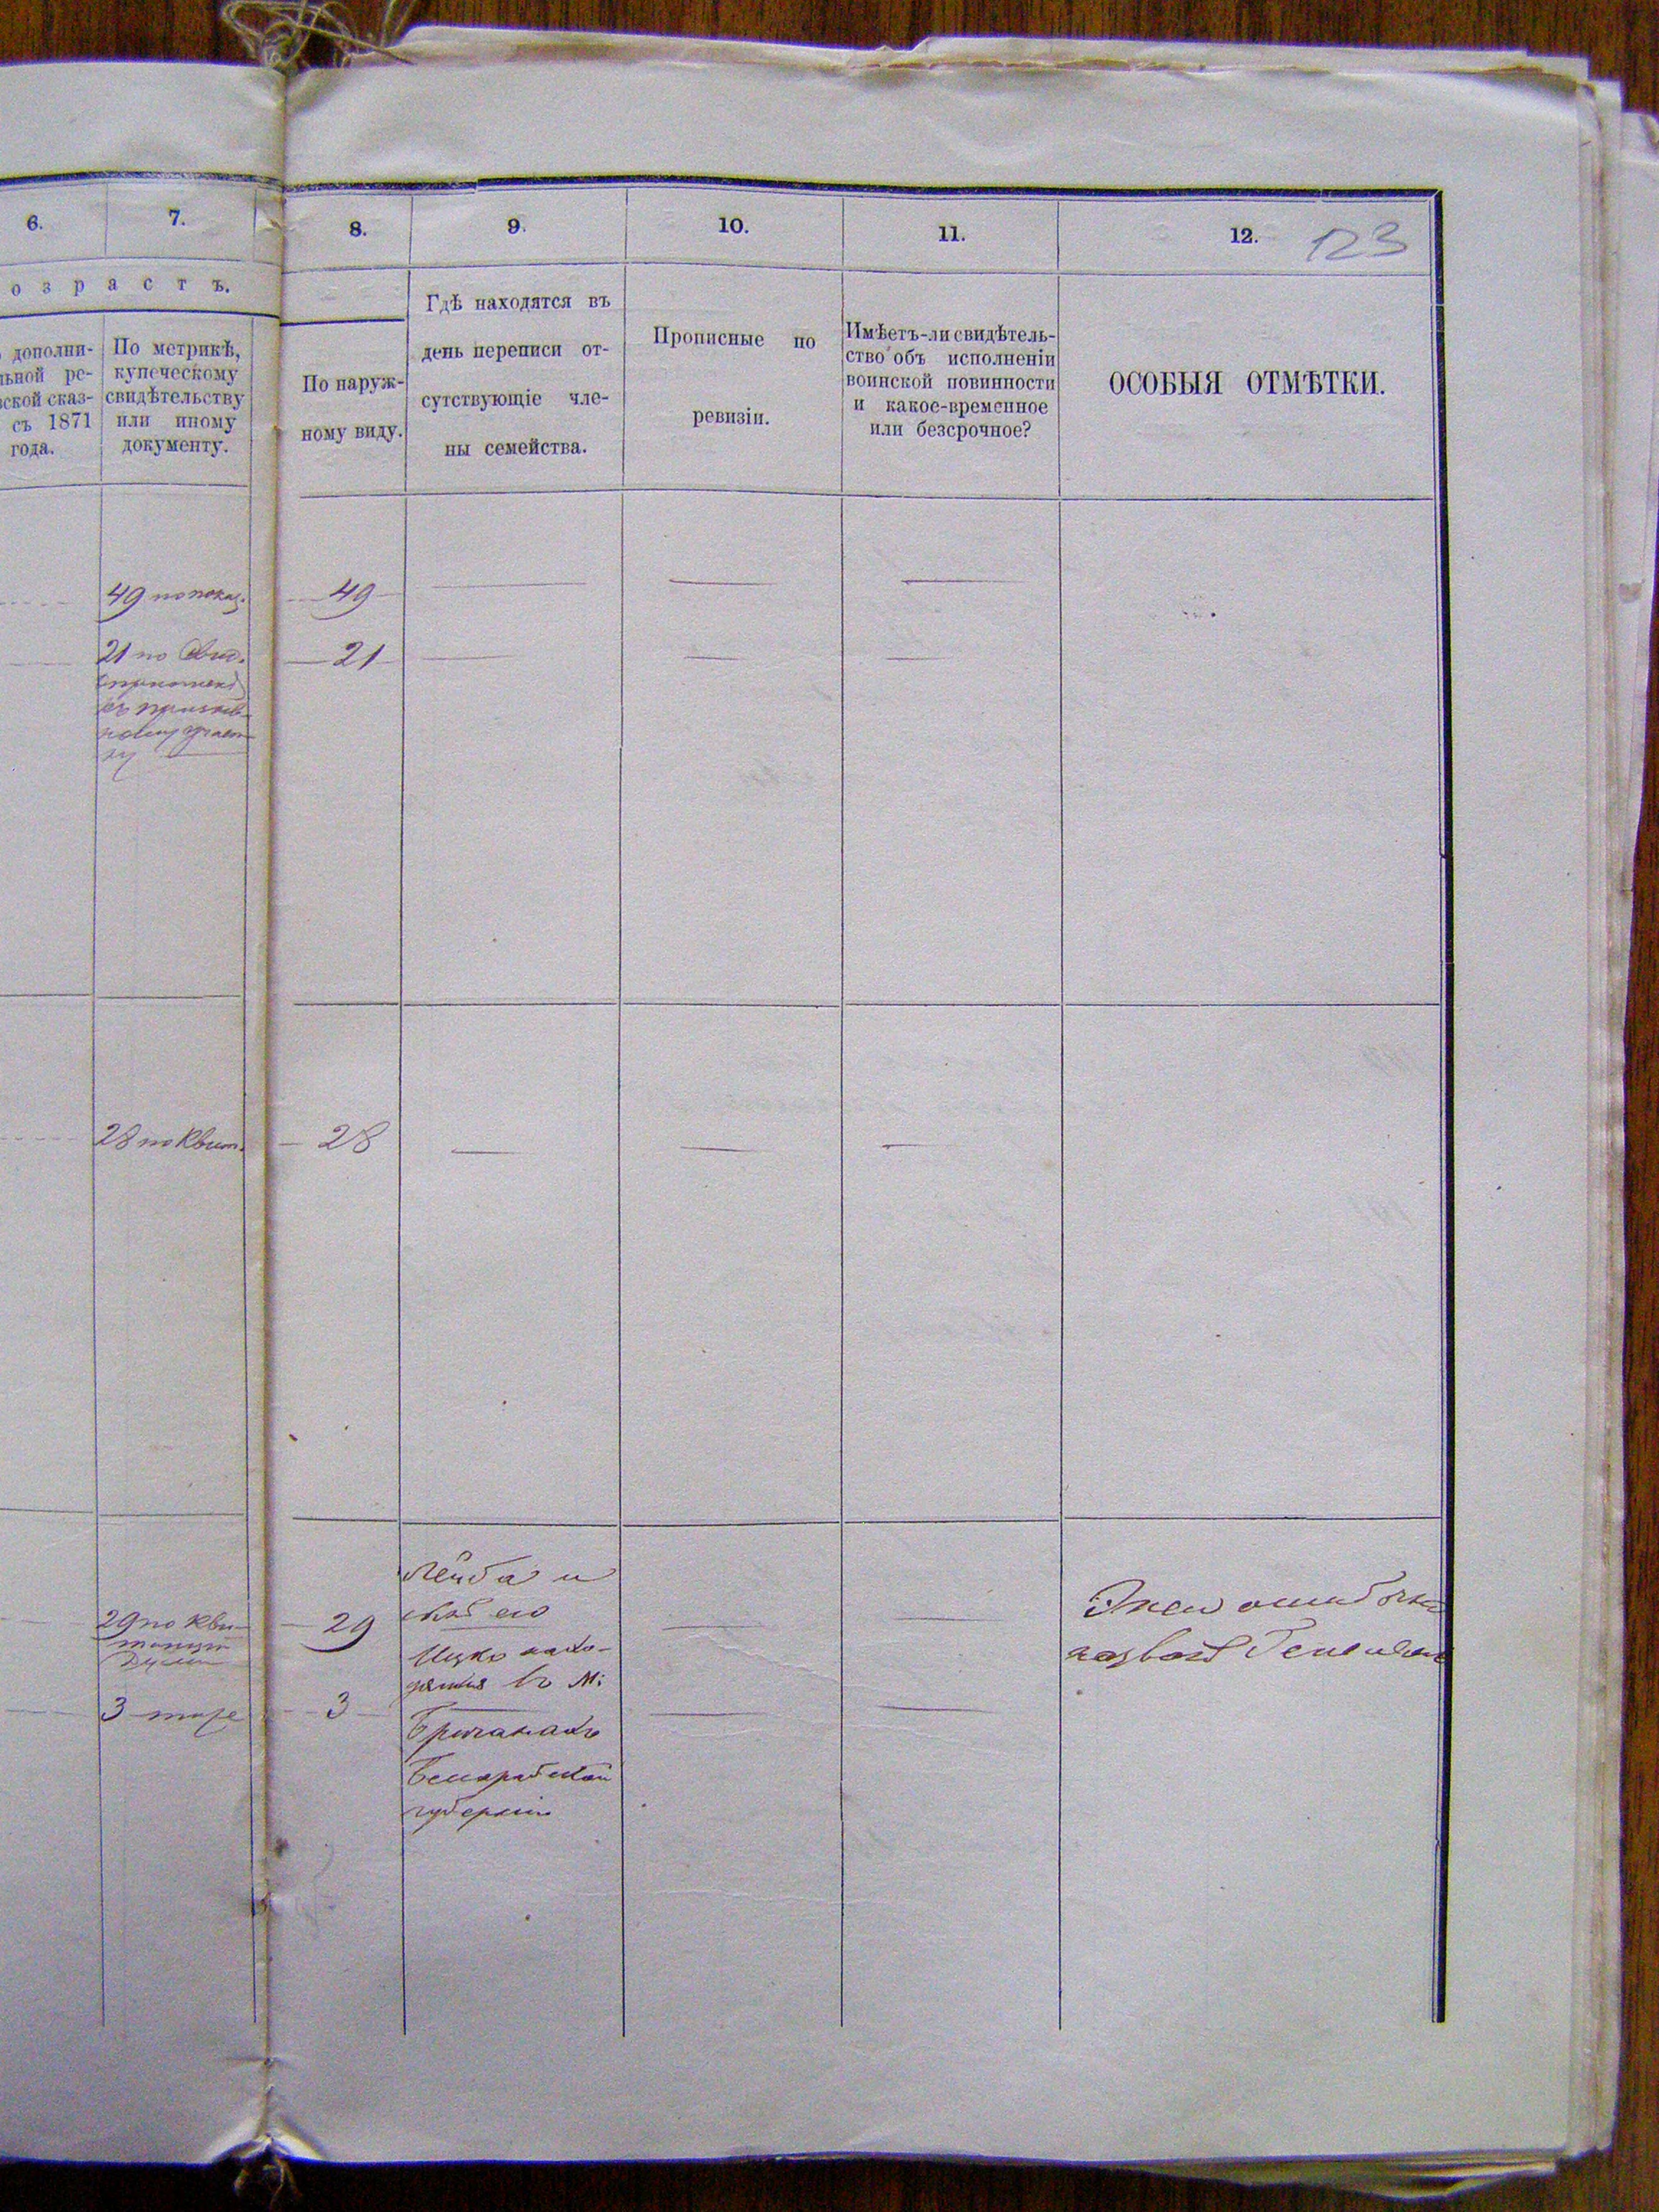 6.
7.
8.
9.
10.
11.
12.
123
озрастъ.
дополни-
ьной ре-
ской сказ-
съ 1871
года.
По метрикѣ,
купеческому
свидѣтельству
или иному
документу.
По наруж-
ному виду.
Гдѣ находятся въ
день переписи от-
сутствующіе чле-
ны семейства.
Прописные по
ревизіи.
Имѣетъ-ли свидѣтель-
ство объ исполненіи
воинской повинности
и какое-временное
или безсрочное?
ОСОБЫЯ ОТМѢТКИ.
49 по показ.
49
21 по
21
28 по Квит.
28
29 по Кви-
танціи
Думы
29
3 тоже
3
Лейба и
его
Ицко нахо-
дятся въ м:
Бричанахъ
Бессарабской
губерніи
ошибочно
названъ